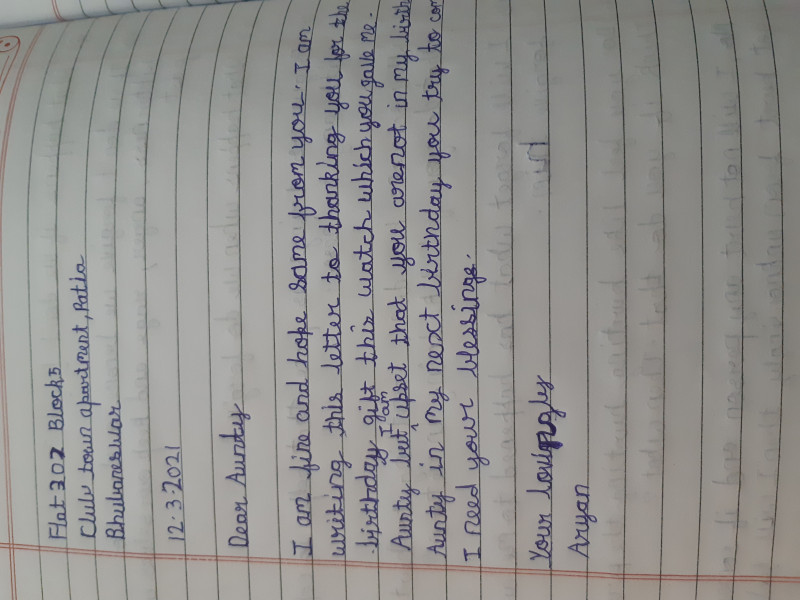 Flat 302 Block5
Club town apartment, Patia
Bhubaneswar
12.3.2021
Dear Aunty
I am fine and hope same from you. I am
writing this letter to thanking you for the
birthday gift this watch which you gave me.
Aunty but I am upset that you are not in my birth
Aunty in my next birthday you try to com
I need your blessings.
Your lovingly
Aryan